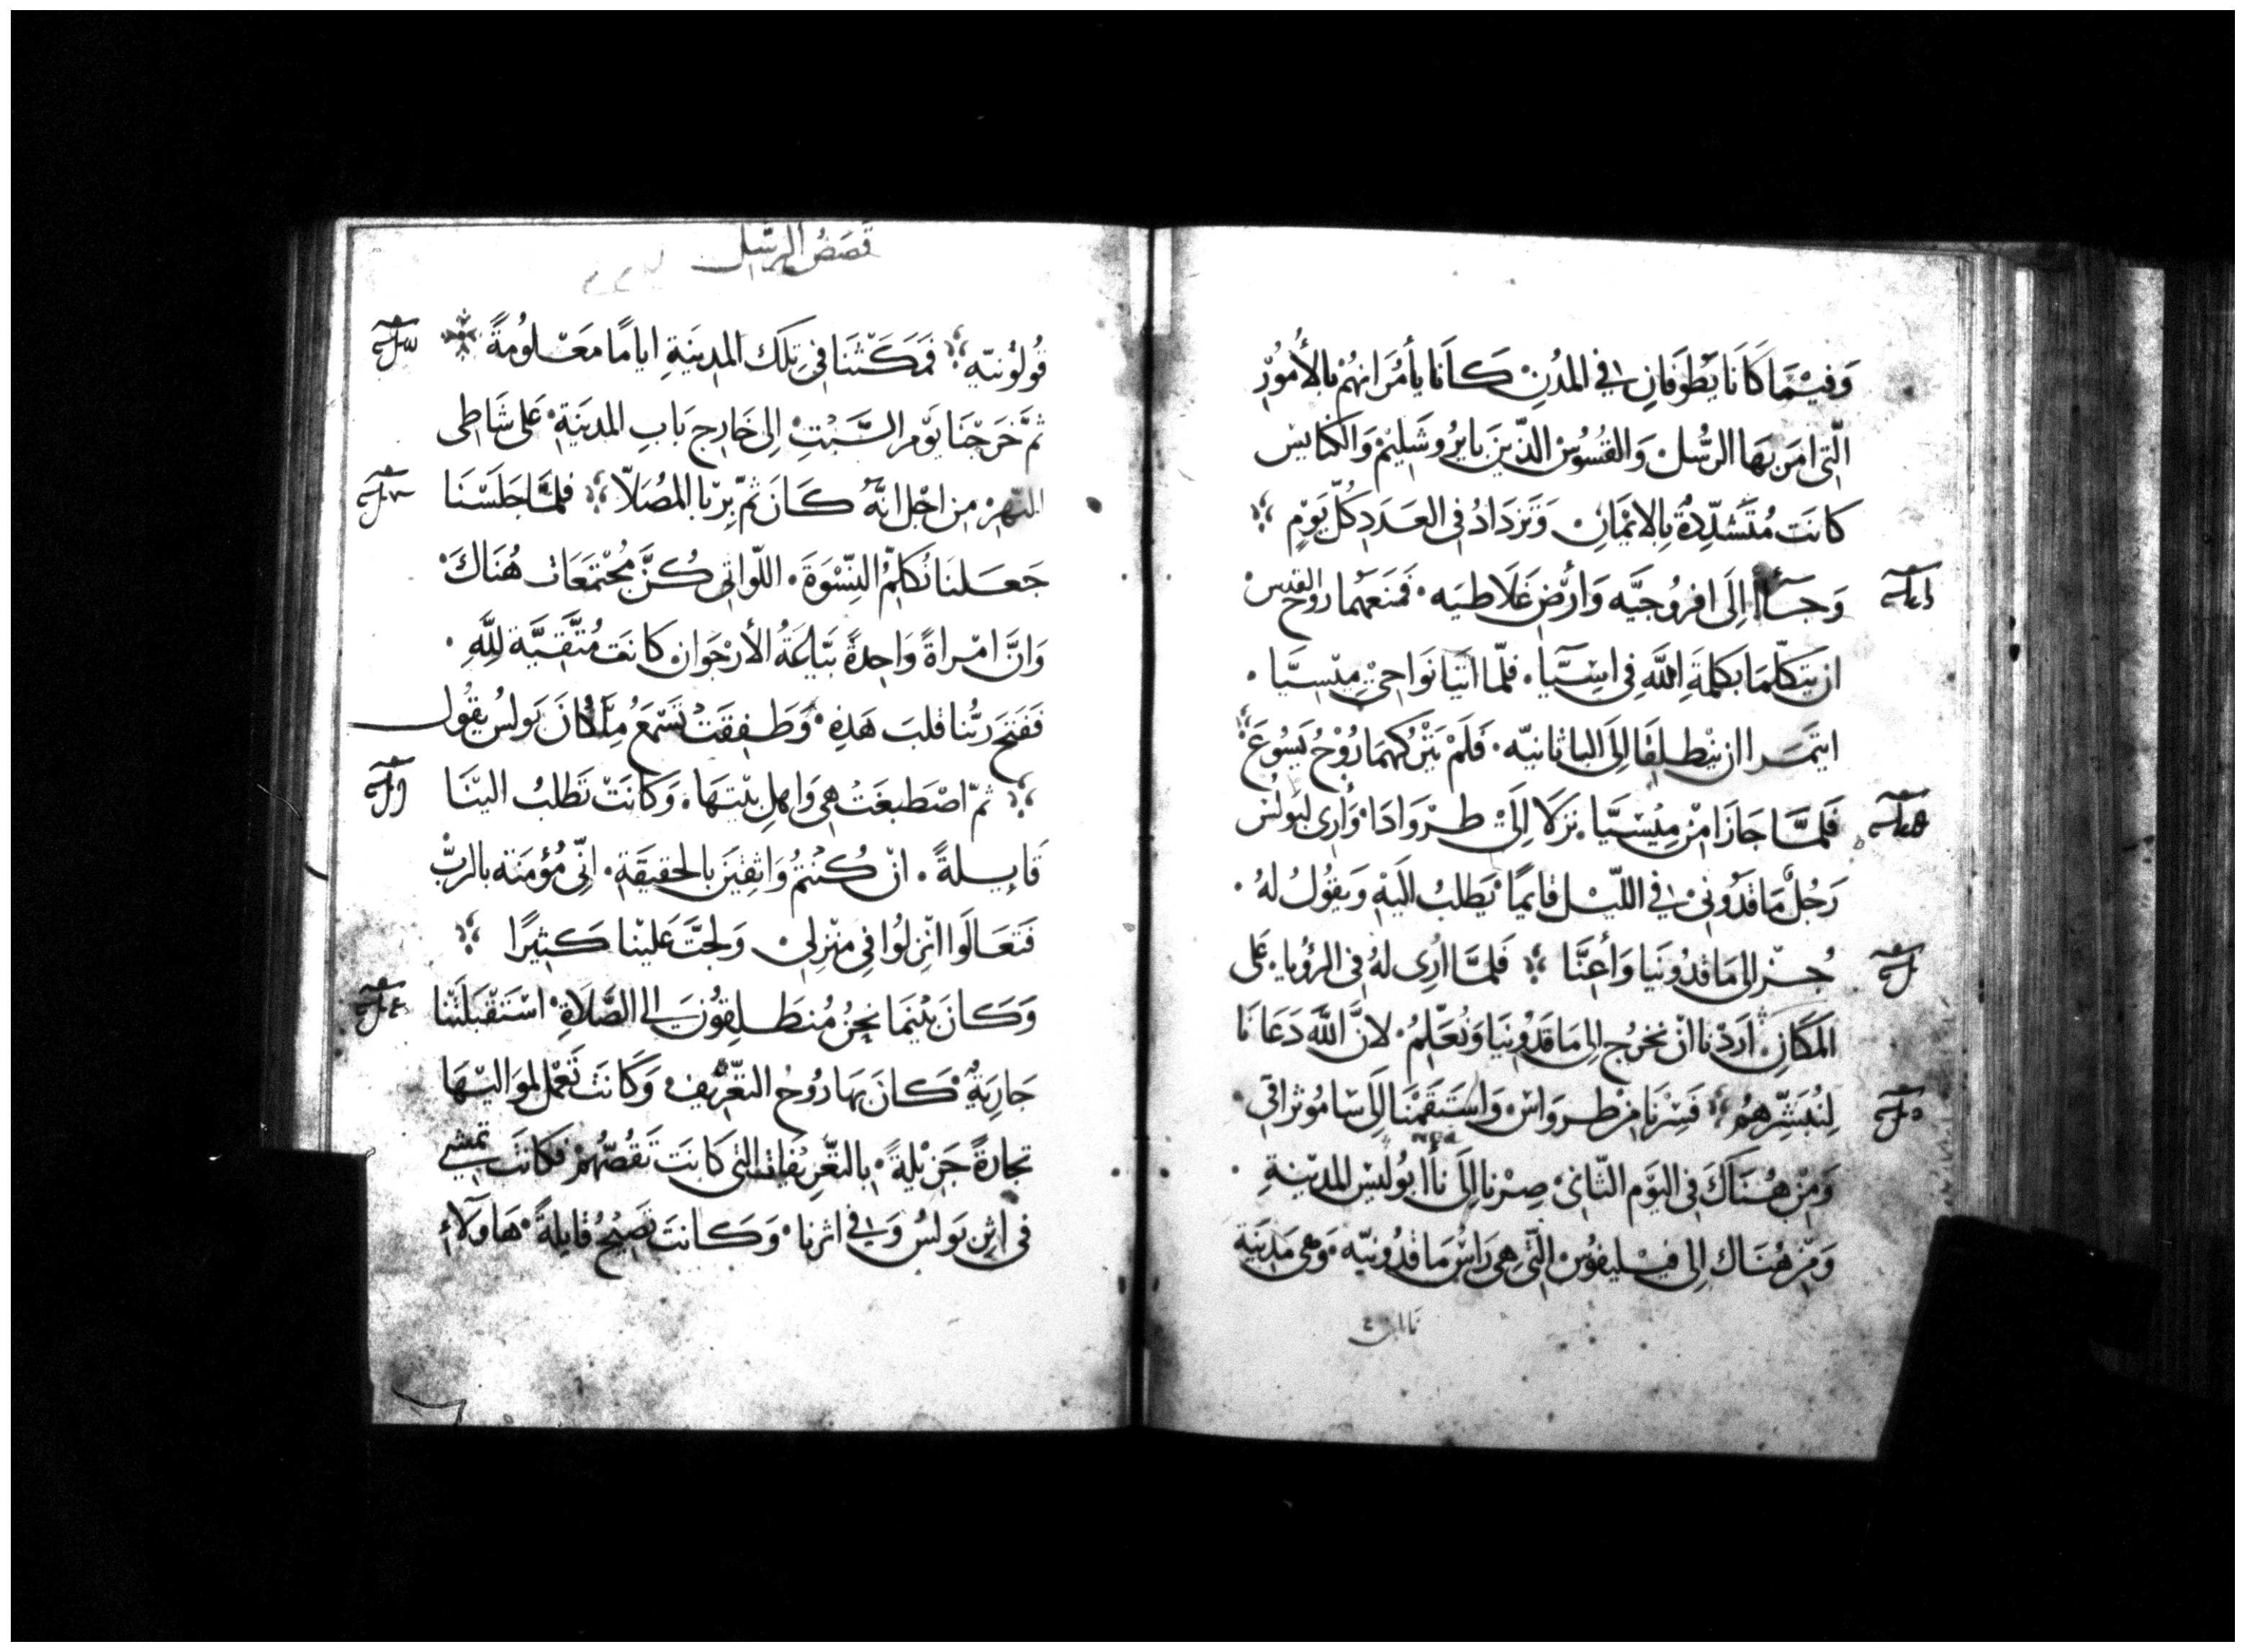 وَفيْمَا كَانَا يَطُوْفَانِ في المدُنِ كَانَا يأمُرَانهُمْ بالأمُوُرِ
الّتى امَرَ بهَا الرسُّل وَالقسُوُسْ الذّينَ بايرُوشَليْم وَالكنايس
كانَت مُتَشدِّدةٌ بِالايْمَانِ وَتزدَادُ فى العَدَدِ كلّ يَوْمٍ
وَجَآأا اِلَى افروُجيَّه وَأرْضِ غَلَاطيَه فمَنَعَهُما روُحْ القدس
ان يتكلّمَا بكلمَةِ اللّهِ فى اسِيَّا. فلمّا اتيَا نَواحىْ مِيْسيَّا.
ايتمَرا ان ينْطلِقَا اِلىَ الباثانيّه. فَلَمْ يَتركهمَا روُحُ يَسُوعَ
فَلمَّا جَازَا مِنْ مِيْسيَّا. نزَلَا اِلىْ طرْوَادَا. وَأُرى لبَولُس
رَجُلٌ مَاقدُونىْ في اللّيْل قايمًا يَطلبُ اليَهِ وَيقوُلُ لهُ.
جُزْ الى مَاقدُونيَا وَأعِنَّا فَلمَّا اُرِى لهُ فى الرؤُيا. عَلى
المَكَانِ أرَدْنا انْ نخرُج الى مَاقدُونيَا وَنُعَلِّمُ. لانَّ اللّهَ دَعَانَا
لِنُبَشِّرهمُ فَسِرْنَا مِنْ طروَاسْ وَاستَقَمْنَا اِلَى سَامُوثرَاقى
وَمِنْ هُنَاكَ فى اليَوْم الثّانىْ صِرْنا اِلَى نأابُوليْس المدِيْنةِ
وَمِنْ هُنَاك اِلى فيْليفوُسْ الّتى هِى رَاسُ مَاقدُونيّه. وَهى مَدِينَة
قصَصُ الرسُل
قوُلوُنيّه فمَكَثْنَا فى تِلكَ المدِينَةِ ايامًا مَعْلوُمةً
ثمَّ خَرَجْنَا يَوْم السَّبْتِ اِلى خَارِج بَابِ المدينَةِ عَلى شَاطى
النّهرْ مِن اجْل انَّهُ كَانَ ثمّ يرْبا المصُلّا فلمَّا جَلَسْنَا
جَعَلنَا نُكلِّمُ النِّسْوَةَ. اللّوَاتى كُنَّ مُجْتمَعَات هُنَاكَ
وَانَّ امْراةً وَاحِدةً بيَّاعَةُ الأرْجَوَان كانَت مُتَّقيَّة لِلَّهِ.
فَفتحَ ربُّنا قلبَ هَذِهِ وَطفِقَتْ تَسْمَعُ مِمَّا كَانَ بَولسُ يقُول
ثمّ اصْطبغَت هِى وَاهلِ بيْتهَا. وَكَانَتْ تَطلبُ اليْنَا
قَايلةً. انْ كُنتمُ وَاثقيَن بالحقيقَةِ. انّى مُؤْمنَة بالربّْ
فَتعَالَوا انْزلوُا فى منْزلىْ وَلجتَّ عَليْنا كَثيرًا
وَكَانَ بيْنمَا نحنُ مُنطَلِقوُنَ الى الصَّلَاةِ اسْتقْبَلَتْنا
جَاريَةٌ كَانَ بهَا رُوحُ التعّريف وَكَانَت تعْمل لموَاليْهَا
تجارةً جَزيْلةً. بالتعّرِيفَات التى كَانَت تَقُصّهُمْ فكَانَت تمشى
فى اثِر بَولسُ وَفى اثرنا. وَكَانتَ تَصِيْحُ قايلةً هَاوُلآءِ